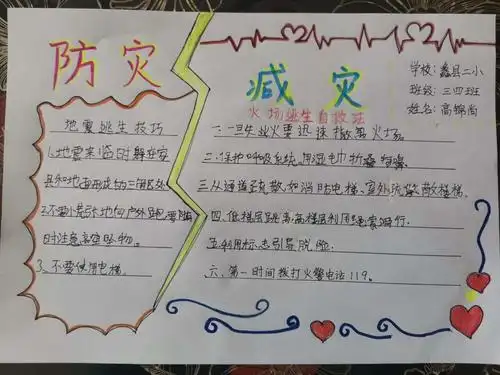 防灾
减灾
学校:蠡县二小
班级:三四班
姓名:高锦尚
火场逃生自救法
地震逃生技巧
1.地震来临时躲在家
具和地面形成的三角区外
2.不要慌张地向户外跑
时注意高空坠物。
3、不要使用电梯。
一.一旦失业火要迅速撤离火场。
二.保护呼吸系统,用湿毛巾折叠
三.从通道疏散,如消防电梯、室外疏散楼梯。
四.低楼层跳高楼层利用绳索滑行.
五.利用标志引导脱险.
六、第一时间拨打火警电话119。